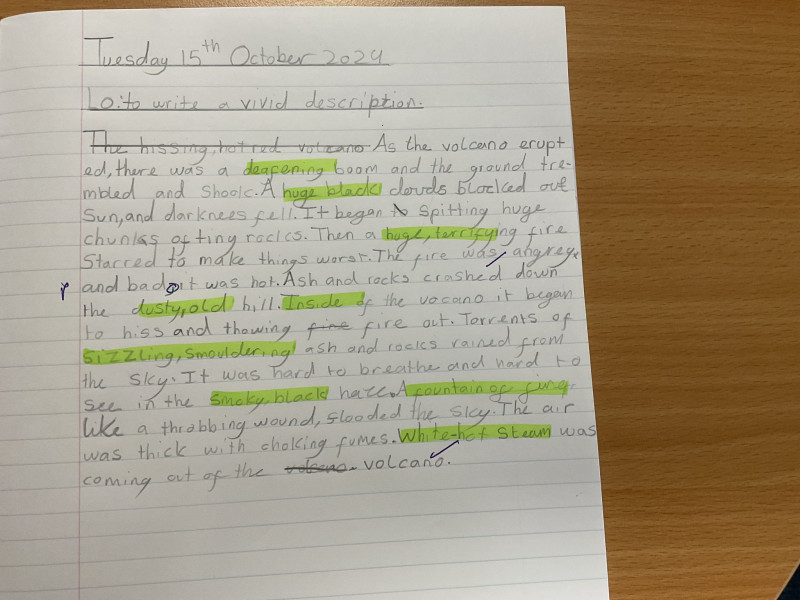 Tuesday 15th October 2024
LO: to write a vivid description.
The hissing, hot red volcano As the volcano erupt
ed, there was a deafening boom and the ground tre-
mbled and shook. A huge black clouds blocked out
Sun, and darknees fell. It began to spitting huge
chunks of tiny rocks. Then a huge, terrifying fire
Starred to make things worst. The fire was angrey
and bad it was hot. Ash and rocks crashed down
the dusty, old hill. Inside of the vocano it began
to hiss and thowing fire fire out. Torrents of
sizzling, smouldering ash and rocks rained from
the sky. It was hard to breathe and hard to
see in the smoky, black haze. A fountain of
like a throbbing wound, flooded the sky. The air
was thick with choking fumes. White-hot Steam was
coming out of the volcano. volcano.